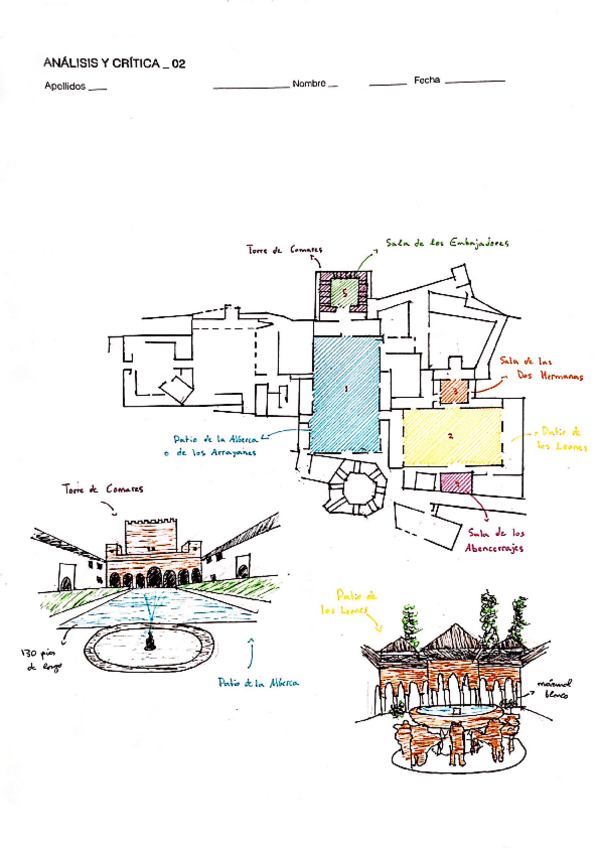 ANÁLISIS Y CRÍTICA _ 02
Apellidos ___ ___________ Nombre __ _____ Fecha ________
Torre de Comares
Sala de los Embajadores
5
Sala de las
Dos Hermanas
3
1
2
Patio de
los Leones
Patio de la Alberca
o de los Arrayanes
Sala de los
Abencerrajes
Torre de Comares
130 pies
de largo
Patio de la Alberca
Patio de
los Leones
mármol
blanco